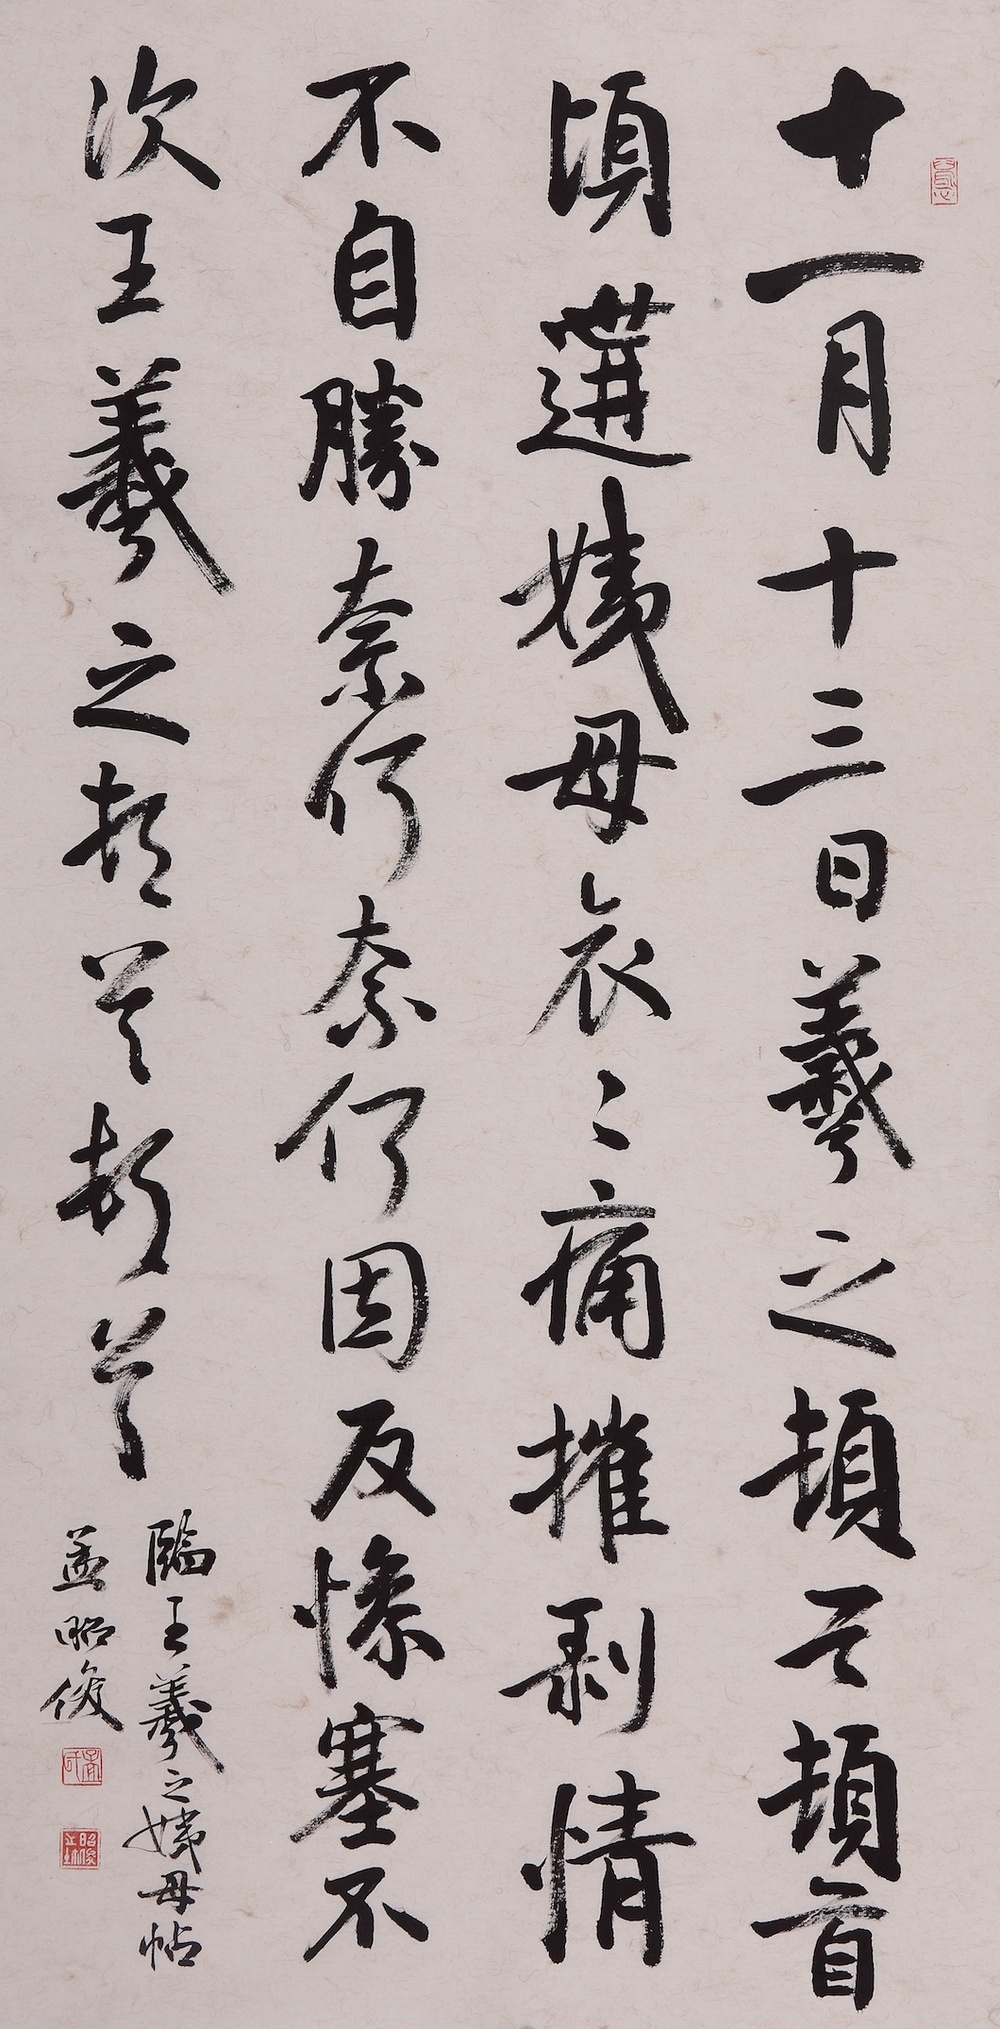 十一月十三日羲之頓首頓首
頃遘姨母哀〻痛摧剥情
不自勝奈何奈何因反慘塞不
次王羲之頓首頓首
臨王羲之姨母帖
孟昭俊